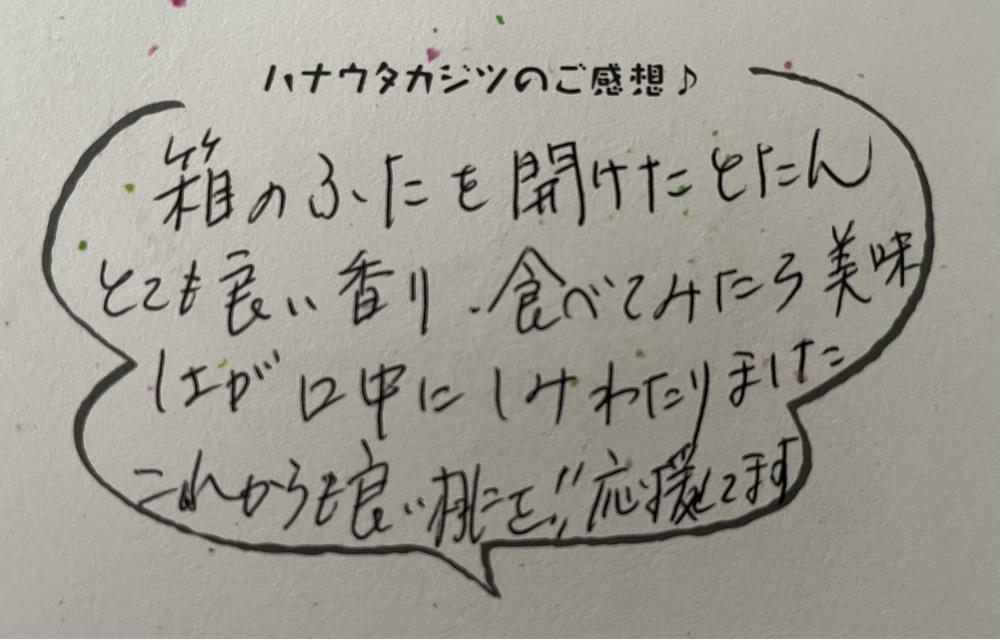 ハナウタカジツのご感想♪
箱のふたを開けたとたん
とても良い香り、食べてみたら美味
しさが口中にしみわたりました
これからも良い桃を!!応援してます